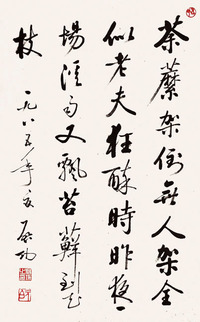 荼蘼架倒无人架全
似老夫狂醉時昨夜一
場涯雨又飘苔藓到花
枝 一九八五年夏 启功